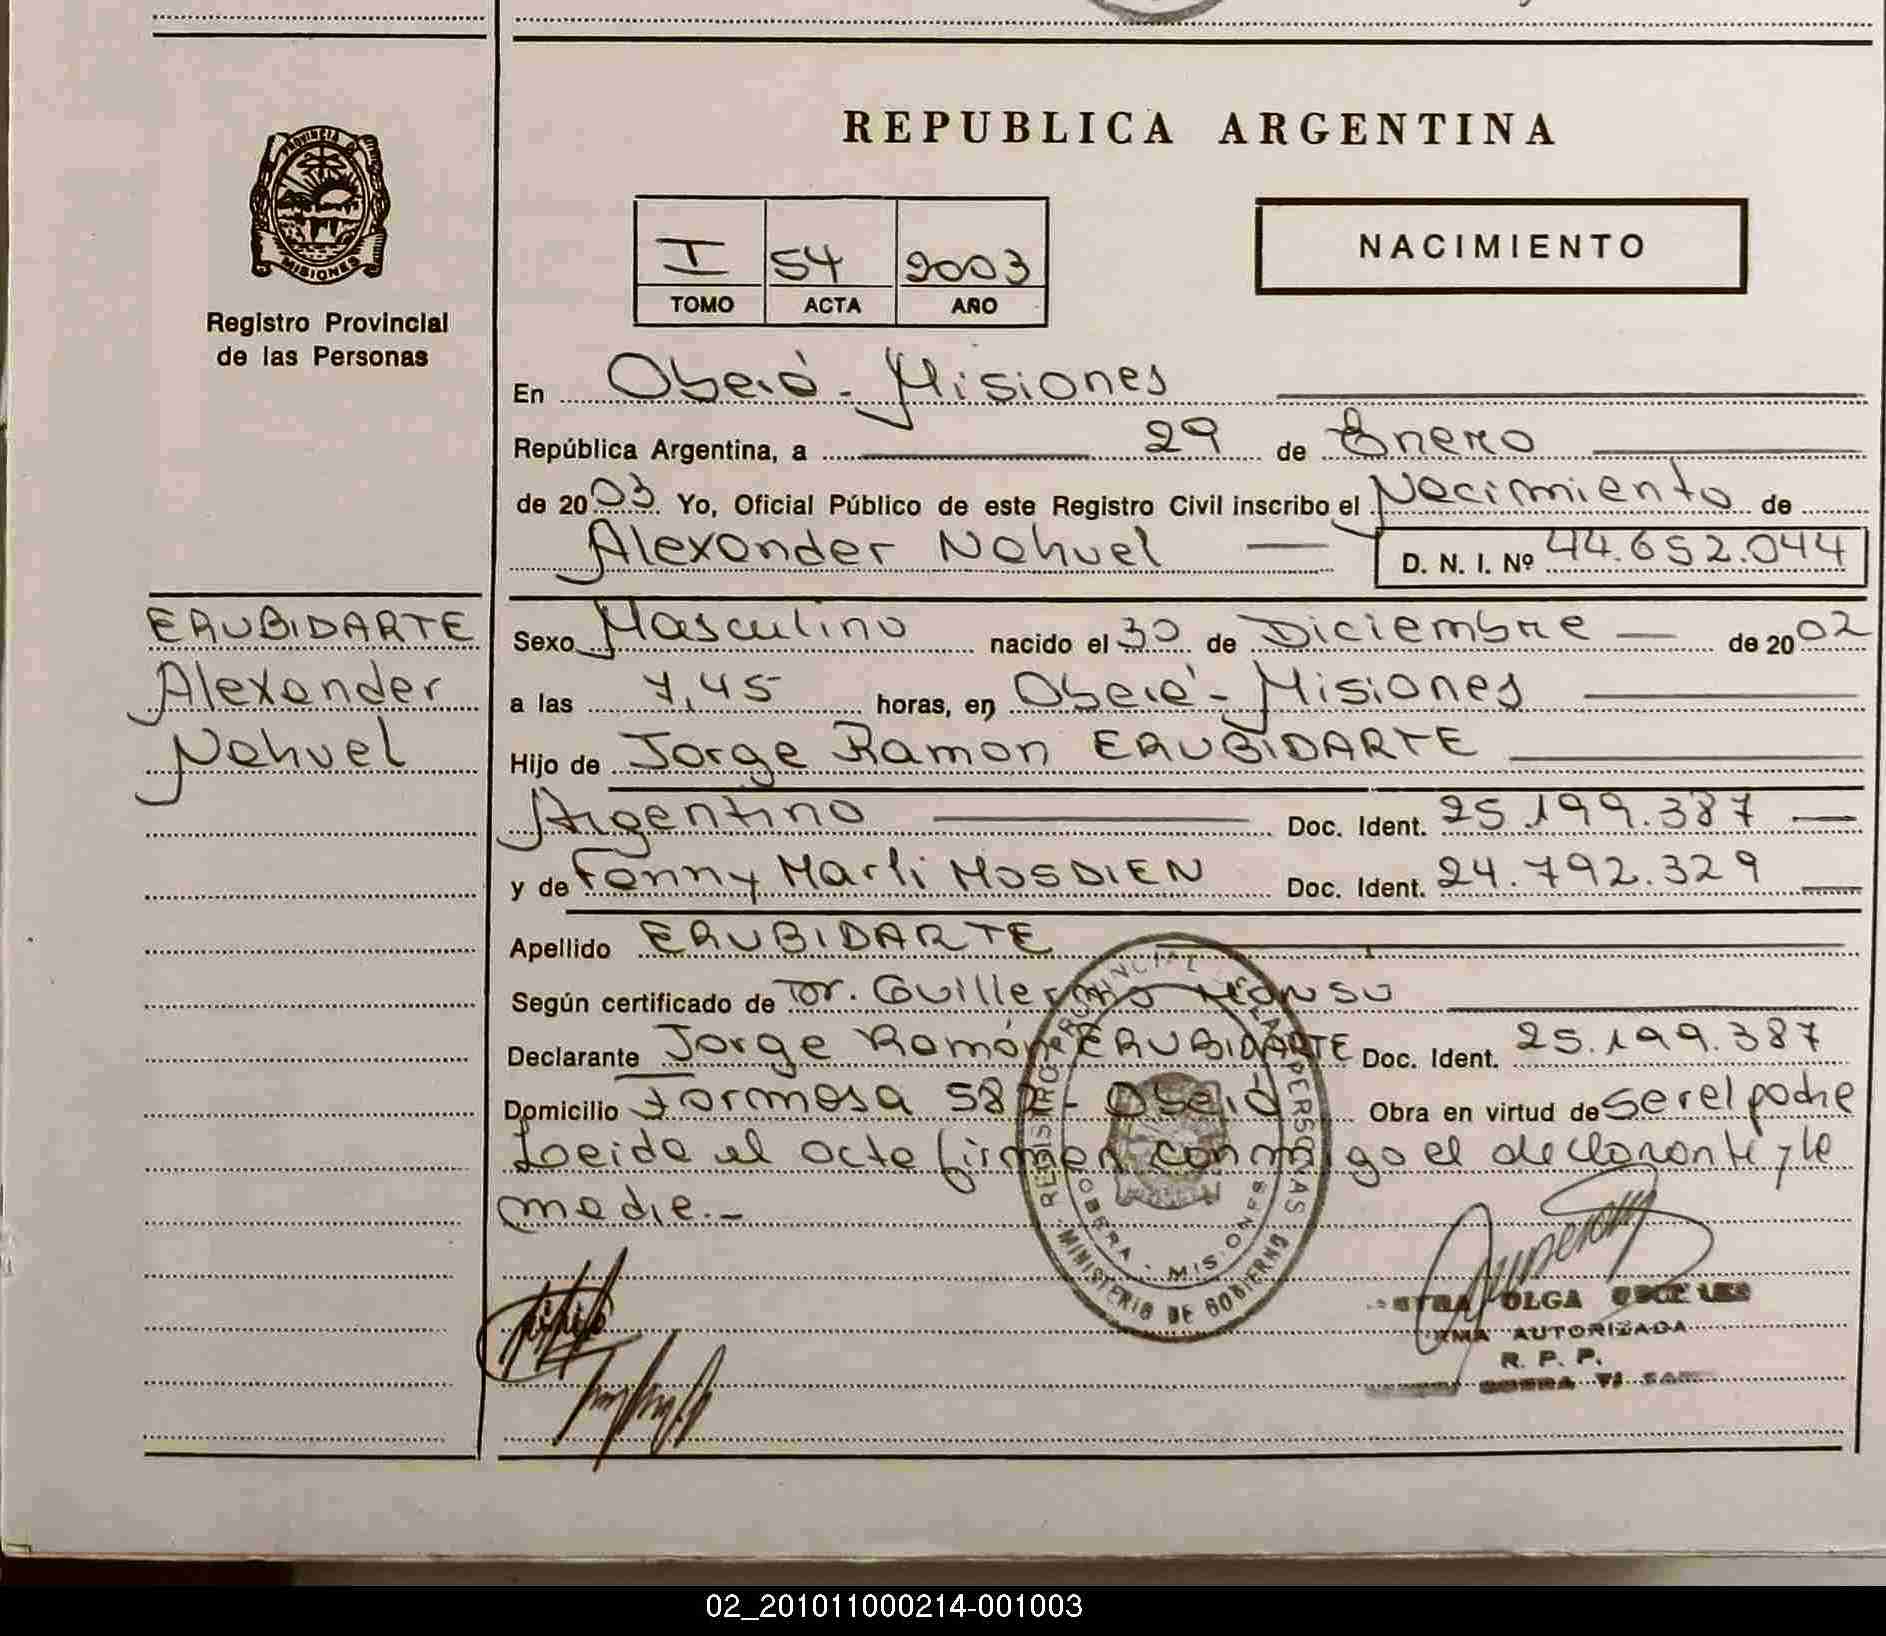 REPUBLICA ARGENTINA
PROVINCIA DE
MISIONES
Registro Provincial
de las Personas
I 54 2003
TOMO ACTA AÑO
NACIMIENTO
En Oberá - Misiones
República Argentina, a 29 de Enero
de 2003 Yo, Oficial Público de este Registro Civil inscribo el Nacimiento de
Alexander Nahuel D. N. I. Nº 44.652.044
ERUBIDARTE
Alexander
Nahuel
Sexo Masculino nacido el 30 de Diciembre de 2002
a las 7,45 horas, en Oberá - Misiones
Hijo de Jorge Ramon ERUBIDARTE
Argentino Doc. Ident. 25.199.387
y de Fanny Marli MOSDIEN Doc. Ident. 24.792.329
Apellido ERUBIDARTE
Según certificado de Dr. Guillermo Alonso
Declarante Jorge Ramón ERUBIDARTE Doc. Ident. 25.199.387
Domicilio Formosa 582 - Oberá Obra en virtud de ser el padre
Leida el acta firman conmigo el declarante y la
madre.-
REGISTRO PROVINCIAL DE LAS PERSONAS
OBERA - MISIONES
MINISTERIO DE GOBIERNO
OLGA
AUTORIZADA
R. P. P.
02_201011000214-001003